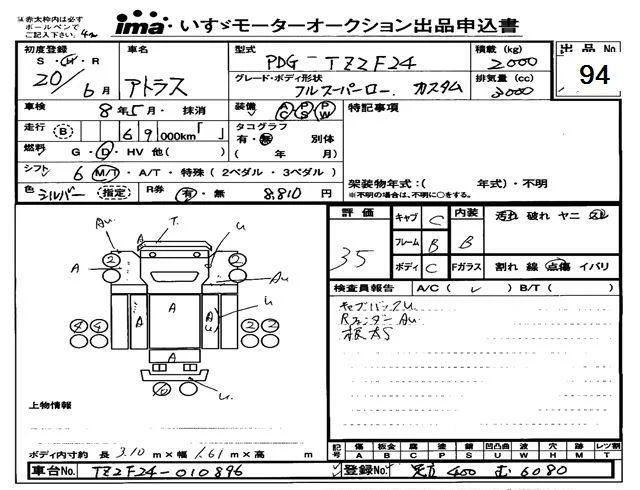 ※赤太枠内は必ず
ボールペンで
ご記入下さい。
ima いすゞモーターオークション出品申込書
初度登録 車名 型式 積載(kg) 出品No
S・H・R アトラス PDG-TZ2F24 2000 94
20/6月 グレード・ボディ形状 排気量(cc)
フルスーパーロー カスタム 3000
車検 8年5月・抹消 装備 AC PS PW 特記事項
走行 (B) 69,000km「 」 タコグラフ
有・無 別体
燃料 G・D・HV 他( ) ( 年 月)
シフト 6 M/T・A/T・特殊(2ペダル・3ペダル) 架装物年式:( 年式)・不明
色 シルバー (指定) R券 有・無 8,810円 ※不明の場合は、不明に○をする。
評価 35 キャブ C 内装 B 汚れ 破れ ヤニ
フレーム B
ボディ C Fガラス 割れ 線 点傷 イバリ
検査員報告 A/C( ✓ ) B/T( )
キャブバックU
RフェンダーAu
Au. T. U
A A 2 2 Au
A A A U U
4 4 2 2
A
U.
上物情報
ボディ内寸約 長 3.10 m×幅 1.61 m×高 m
記号 傷 板金 腐 塗 錆 凹凸曲 波 穴 ミ レツ割
A B C P S U W H M T
車台No. TZ2F24-010896 登録No. 足立 400 む 6080